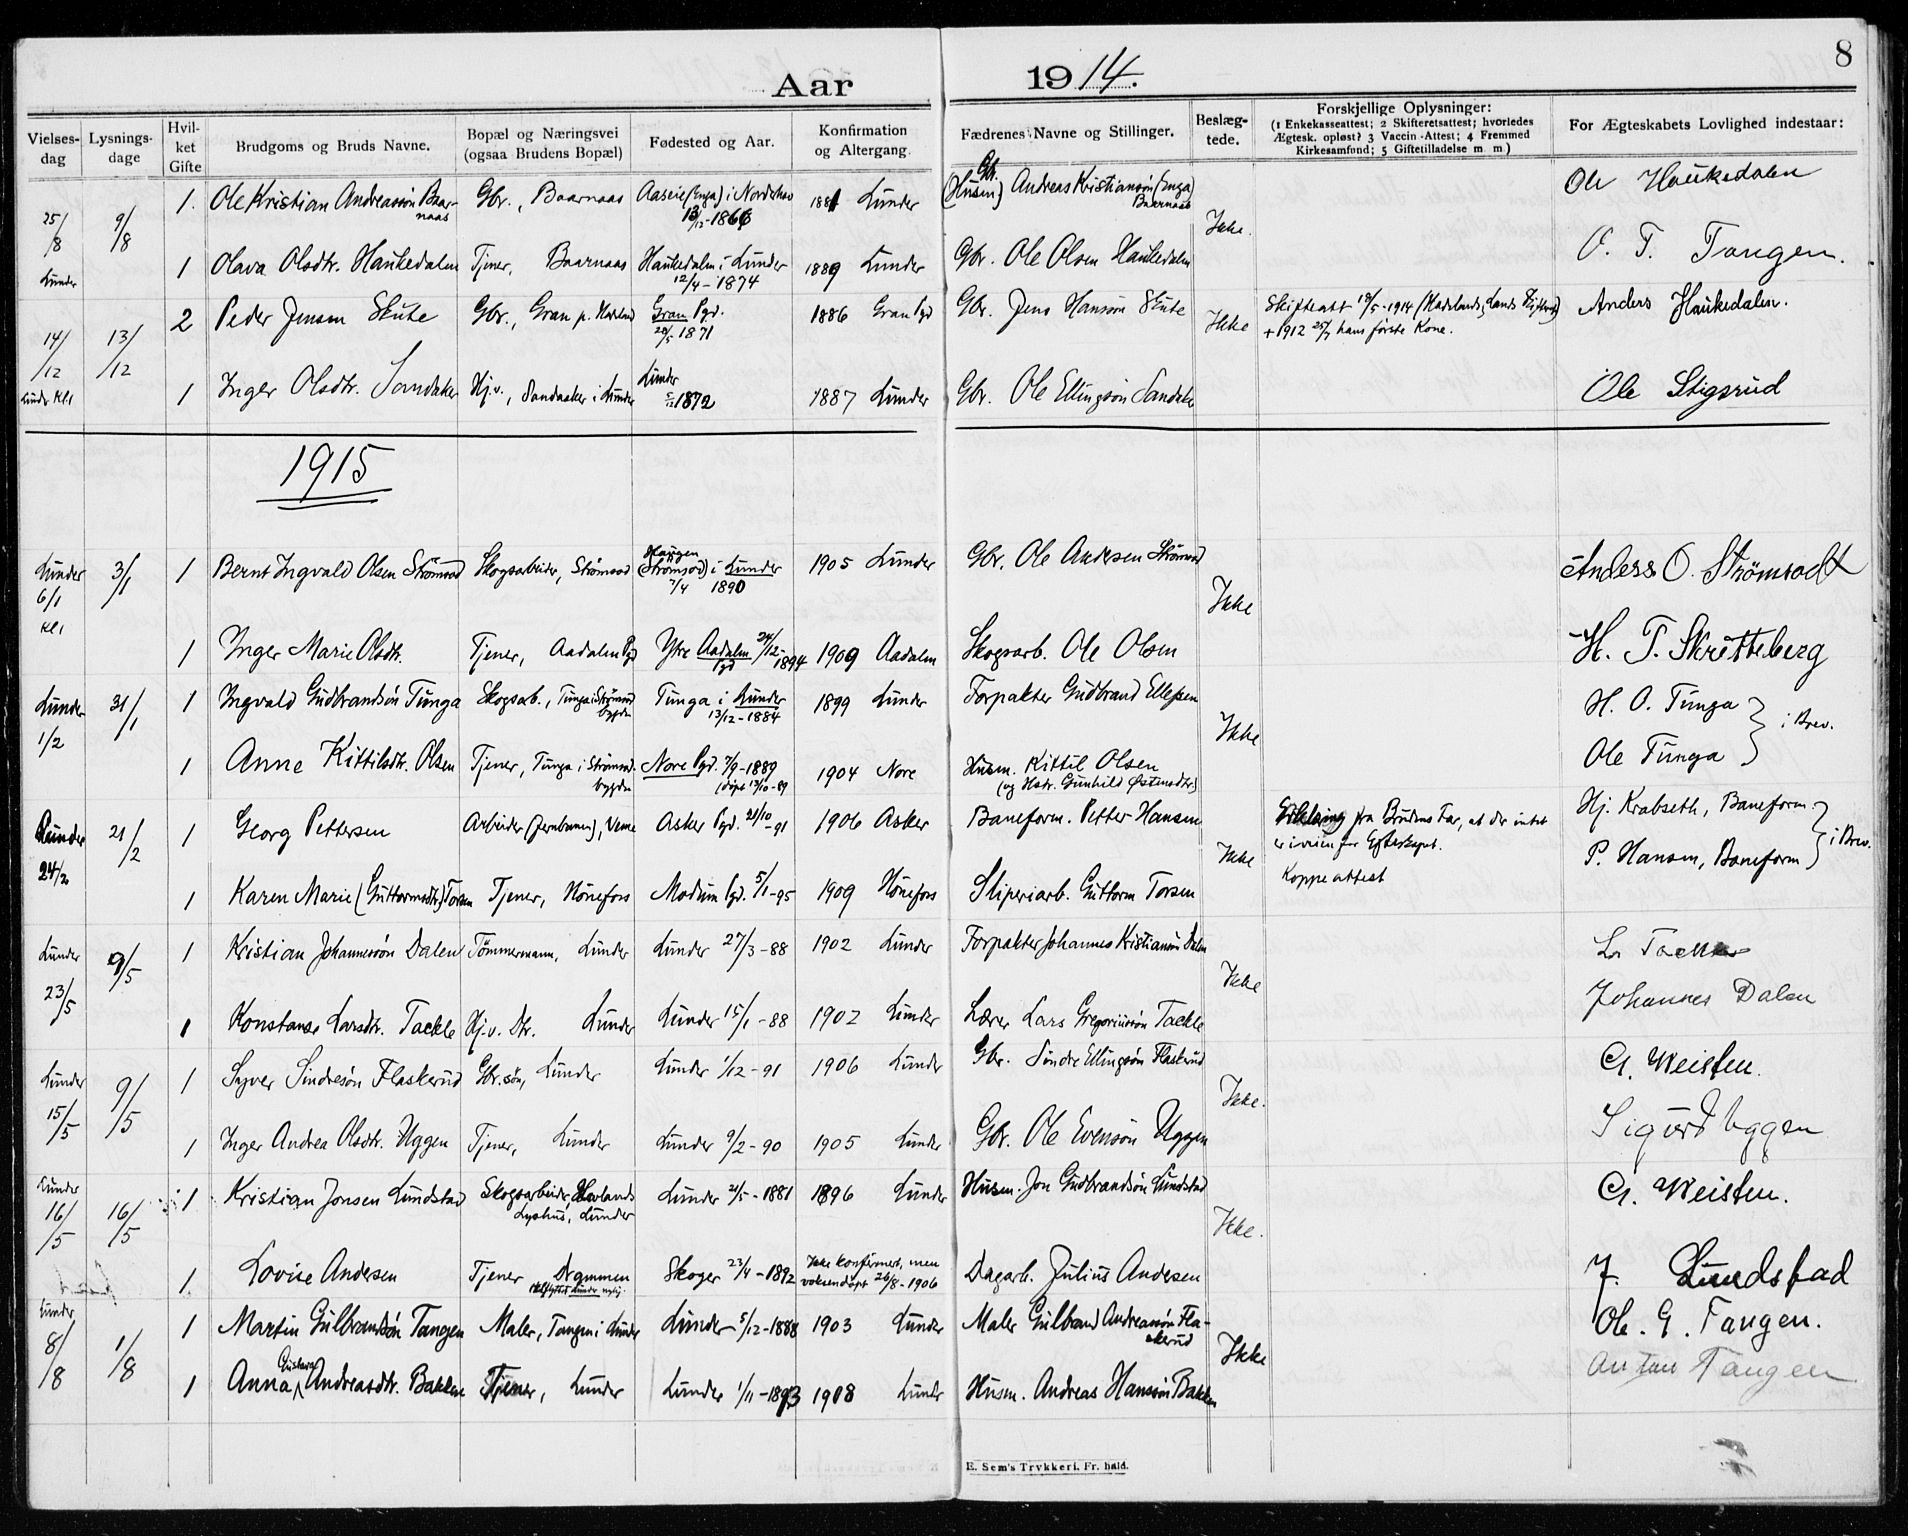 8
Aar 1914.
Vielses-dag Lysnings-dage Hvil-ket Gifte Brudgoms og Bruds Navne. Bopæl og Næringsvei (ogsaa Brudens Bopæl) Fødested og Aar. Konfirmation og Altergang. Fædrenes Navne og Stillinger. Beslæg-tede. Forskjellige Oplysninger: (1 Enkekasseattest; 2 Skifteretsattest; hvorledes Ægtesk. opløst? 3 Vaccin.-Attest; 4 Fremmed Kirkesamfund; 5 Giftetilladelse m. m.) For Ægteskabets Lovlighed indestaar:
25/8 Lunder 9/8 1. Ole Kristian Andreassön Baarnaas Gbr., Baarnaas Aaseie (Enga) i Norderhov 13/12-1866 1881 Lunder Gbr. (Husm) Andreas Kristiansön (Enga) Baarnaas Ikke. Ole Haukedalen
1 Olava Olsdtr. Haukedalen Tjener, Baarnaas Haukedalen i Lunder 12/4-1874 1889 Lunder Gbr. Ole Olsen Haukedalen O. T. Tangen.
14/12 Lunder Kl 1 13/12 2 Peder Jensen Skute Gbr., Gran p. Hadeland Gran Pgd. 20/5 1871 1886 Gran Pgd Gbr. Jens Hansön Skute Ikke Skifteatt 18/5-1914 (Hadeland, Lands Skifter)
+ 1912 25/7 hans förste Kone. Anders Haukedalen.
1 Inger Olsdtr. Sandaker Hj.v., Sandaaker i Lunder Lunder 5/12 1872 1887 Lunder Gbr. Ole Ellingsön Sandaker Ole Stigsrud
1915
Lunder 6/1 Kl 1 3/1 1 Bernt Ingvald Olsen Strömsod Skogsarbeider, Strömsod Haugen (Strömsod) i Lunder 7/4 1890 1905 Lunder Gbr. Ole Andersen Strömsod Ikke Anders O. Strømsodt
1 Inger Marie Olsdtr. Tjener, Aadalen Pgd Ytre Aadalen Pgd 24/12-1894 1909 Aadalen Skogsarb. Ole Olsen H. P. Skrutteberg
Lunder 1/2 31/1 1 Ingvald Gudbrandsön Tunga Skogsarb., Tunga i Strömsodbygden Tunga i Lunder 13/12-1884 1899 Lunder Forpakter Gudbrand Ellefsen Ikke H. O. Tunga } i Brev.
1 Anne Kittilsdtr. Olsen Tjener, Tunga i Strömsod-bygden Nore Pgd. 7/9-1889 (döpt 13/10-89 1904 Nore Husm. Kittil Olsen (og Hstr. Gunhild Östensdtr.) Ole Tunga
Lunder 24/2 21/2 1 Georg Pettersen Arbeider (Jernbanen), Veme Asker Pgd. 21/10-91 1906 Asker Baneform. Petter Hansen Ikke Erklæring fra Brudens Far, at der intet
er iveien for Egteskapet. Hj. Krabseth, Baneform. } i Brev.
1 Karen Marie (Guttormsdtr.) Torsen Tjener, Hönefos Modum Pgd. 5/1-95 1909 Hönefos Sliperiarb. Guttorm Torsen Koppeattest P. Hansen, Baneform
Lunder 23/5 9/5 1 Kristian Johannessön Dalen Tömmermann, Lunder Lunder 27/3-88 1902 Lunder Forpakter Johannes Kristiansön Dalen Ikke
1 Konstanse Larsdtr. Tackle Hj.v. Dtr. Lunder Lunder 15/1-88 1902 Lunder Lærer Lars Gregoriussön Tackle Johannes Dalen
Lunder 15/5 9/5 1 Syver Sindresön Flaskerud Gbr.sön, Lunder Lunder 1/12-91 1906 Lunder Gbr. Sindre Ellingsön Flaskerud Ikke. G. Weisten.
1 Inger Andrea Olsdtr. Uggen Tjener, Lunder Lunder 9/2-90 1905 Lunder Gbr. Ole Evensön Uggen Sigurd Uggen
Lunder 16/5 16/5 1 Kristian Jonsen Lundstad Skogsarbeider, Lyshus, Lunder Lunder 2/5-1881 1896 Lunder Husm. Jon Gudbrandsön Lundstad Ikke. G. Weisten.
1. Lovise Andersen Tjener Drammen Skoger 23/4-1892 Ikke konfirmert, men voksendöpt 26/8-1906 Dagarb. Julius Andersen J. Lundstad
Lunder 8/8 1/8 1 Martin Gulbrandsön Tangen Maler, Tangen i Lunder Lunder 5/12-1888 1903 Lunder Maler Gulbrand Andreassön Fla-skerud Ikke Ole. G. Tangen.
1 Anna Gustava Andreasdtr. Bakken Tjener, Lunder Lunder 1/11-1893 1908 Lunder Husm. Andreas Hansson Bakken Anton Tangen
E. Sem's Trykkeri, Fr.hald.